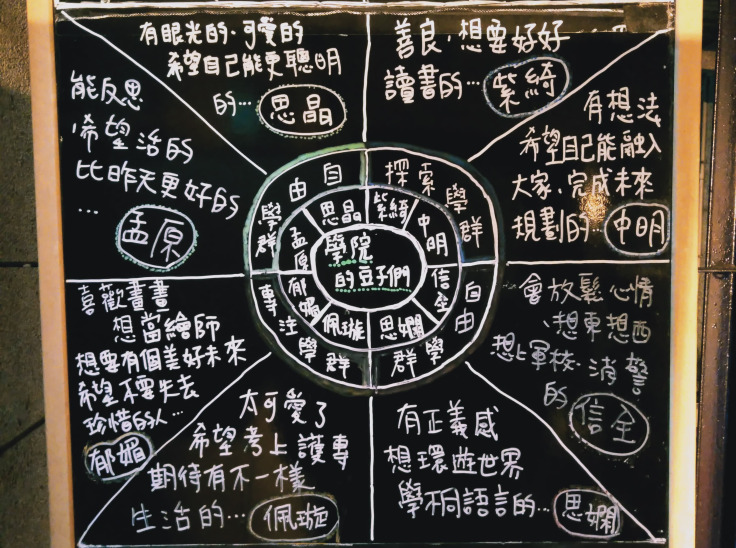 有眼光的、可愛的
希望自己能更聰明
的…思晶
善良，想要好好
讀書的…紫綺
有想法
希望自己能融入
大家，完成未來
規劃的…中明
會放鬆心情
、想東想西
想上軍校、消警
的信全
有正義感
想環遊世界
學桐語言的…思嫻
太可愛了
希望考上護專
期待有不一樣
生活的…佩璇
喜歡畫畫
想當繪師
想要有個美好未來
希望不要失去
珍惜的人…
郁媚
能反思
希望活的
比昨天更好的
…
孟原
自由學群
探索學群
自由學群
專注學群
思晶
紫綺
中明
信全
思嫻
佩璇
郁媚
孟原
學院
的豆子們